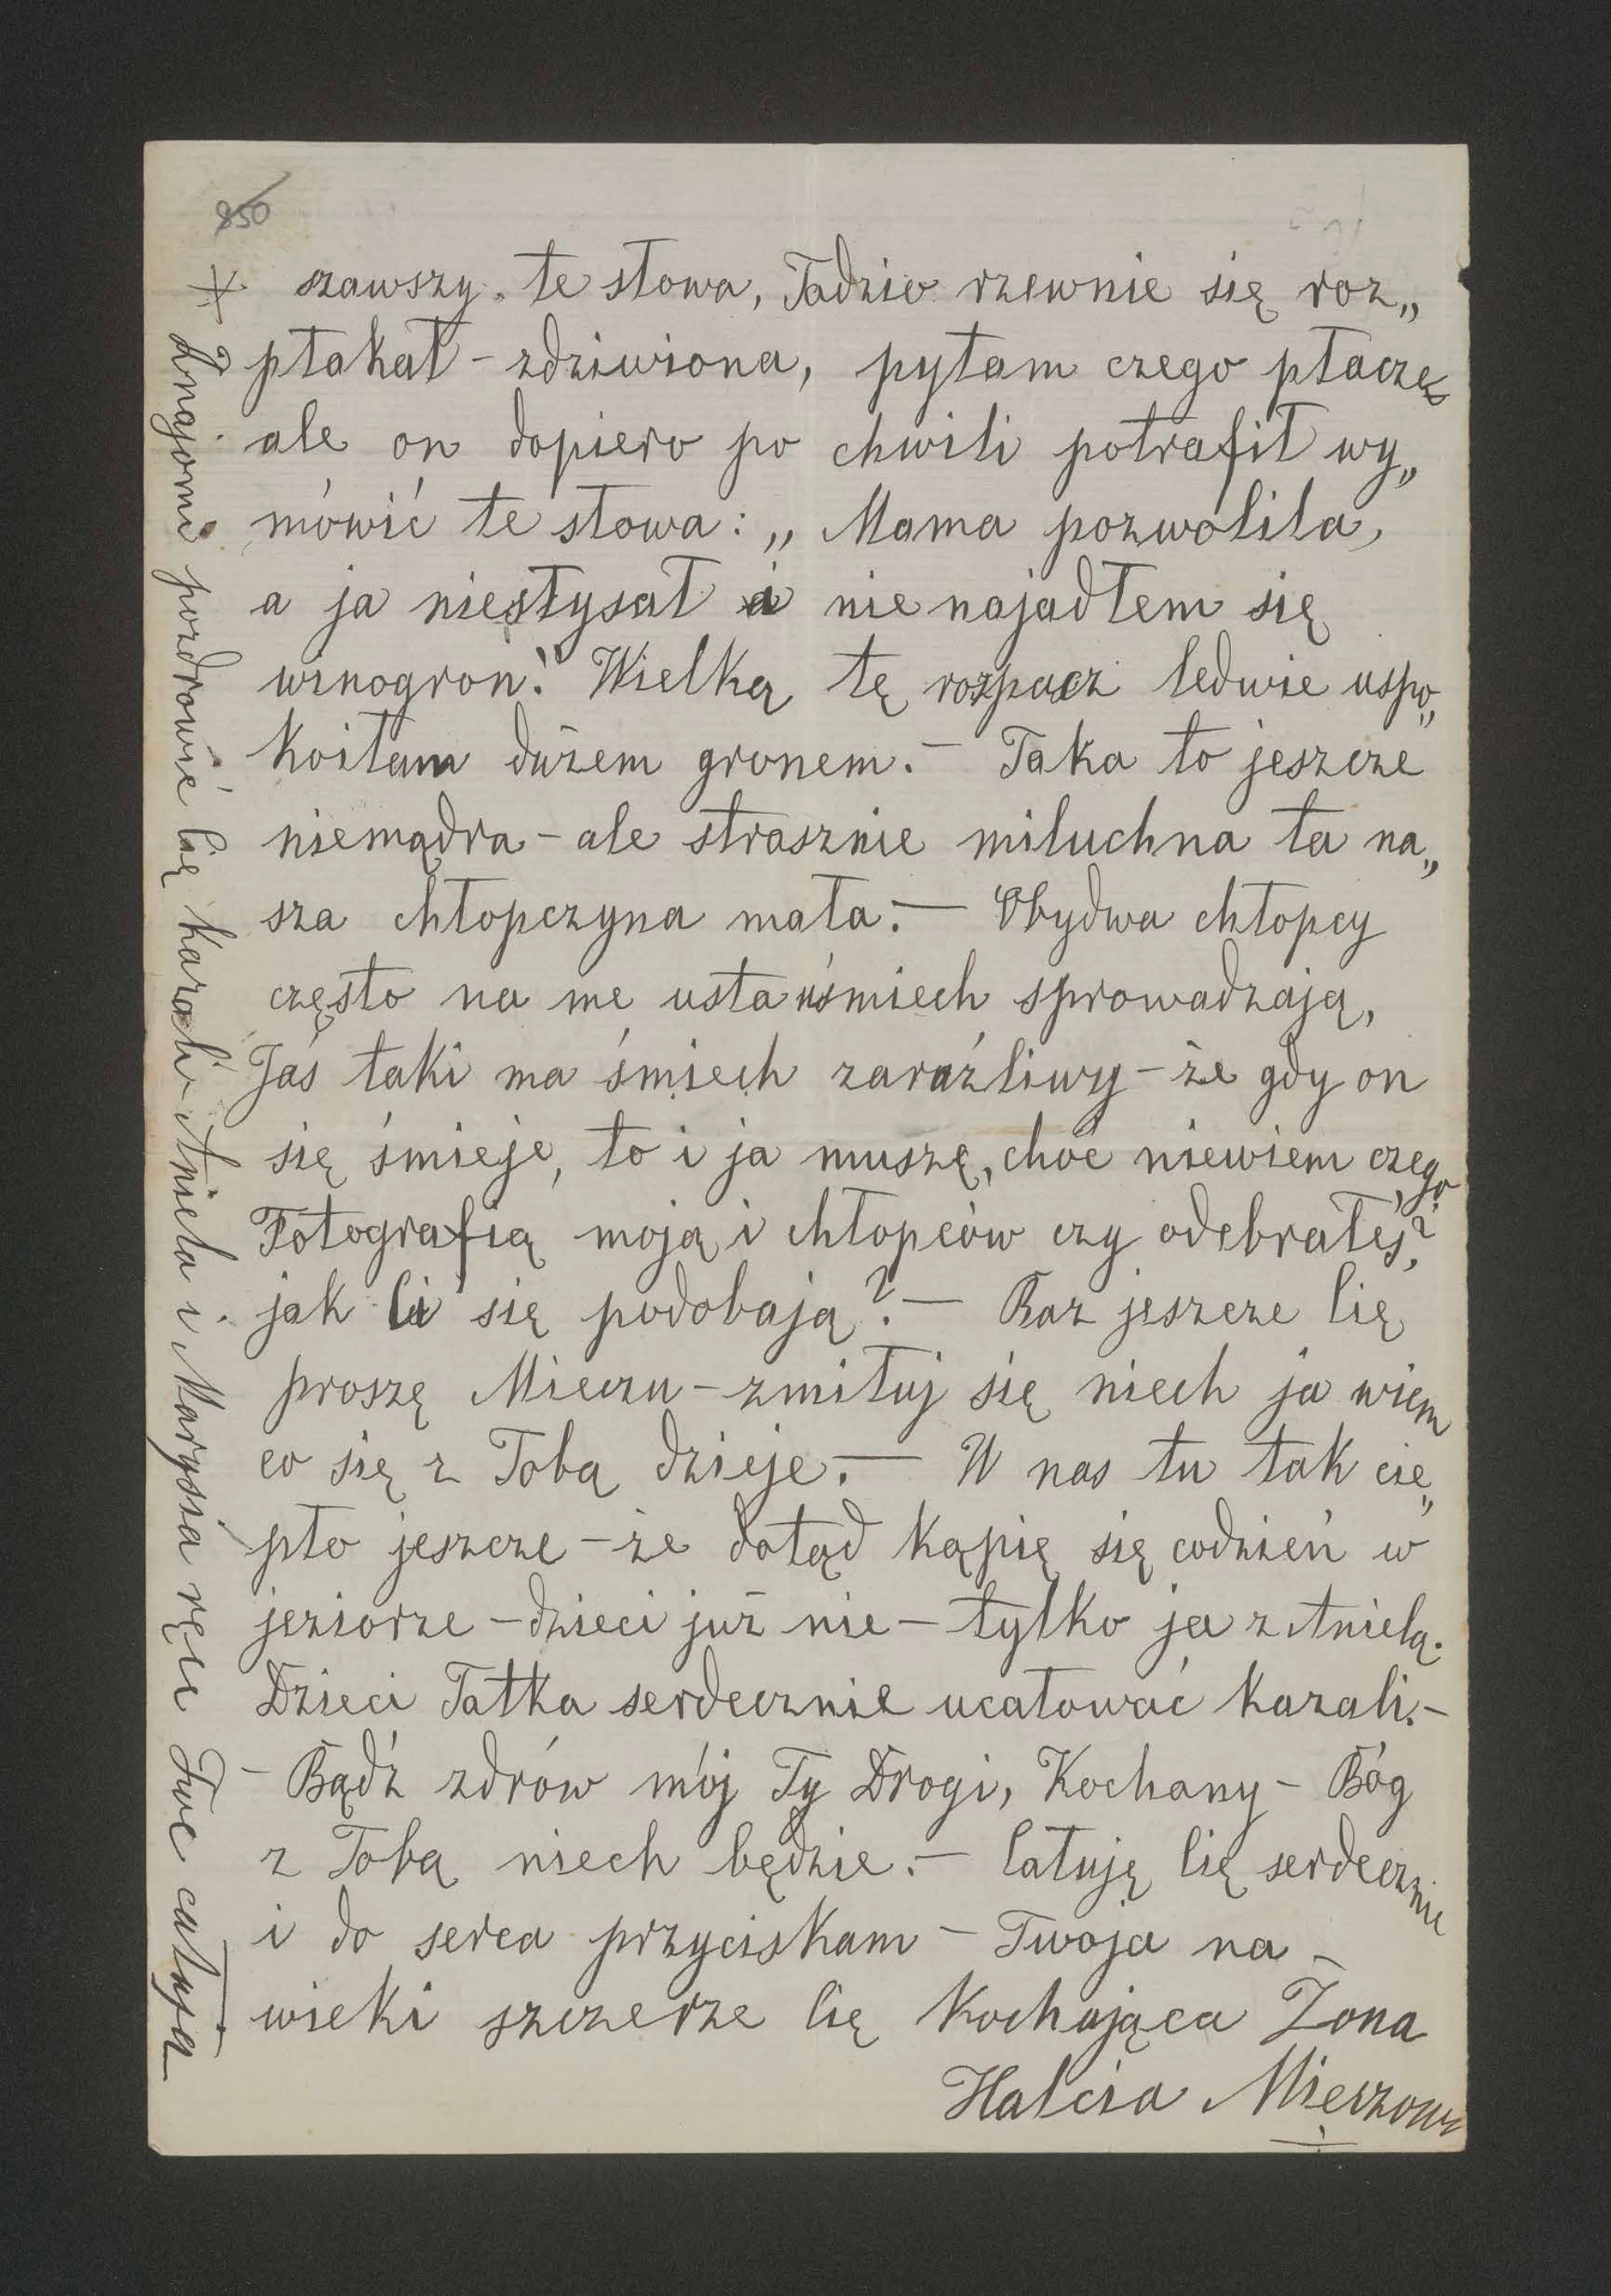 850
szawszy te słowa, Tadzio rzewnie się roz„
płakał – zdziwiona, pytam czego płaczes
ale on dopiero po chwili potrafił wy„
mówić te słowa: „Mama pozwoliła,
a ja niesłysał i nie najadłem się
winogron!" Wielką tę rozpacz ledwie uspo„
koiłam dużem gronem. – Taka to jeszcze
niemądra – ale strasznie miluchna ta na„
sza chłopczyna mała. – Obydwa chłopcy
często na me usta uśmiech sprowadzają,
Jaś taki ma śmiech zaraźliwy – że gdy on
się śmieje, to i ja muszę, choć niewiem czego.
Fotografią moją i chłopców czy odebrałeś?
jak Ci się podobają? – Raz jeszcze Cię
proszę Mieczu – zmiłuj się niech ja wiem
co się z Tobą dzieje. – U nas tu tak cie„
pło jeszcze – że dotąd kąpię się codzień w
jeziorze – dzieci już nie – tylko ja z Anielą.
Dzieci Tatka serdecznie ucałować kazali. –
– Bądź zdrów mój Ty Drogi, Kochany – Bóg
z Tobą niech będzie. – Całuję Cię serdecznie
i do serca przyciskam – Twoja na –
wieki szczerze Cię kochająca Żona
Halcia Mieczowa
+ Znajomi pozdrowić Cię kazali Aniela i Marysia ręce Twe całują